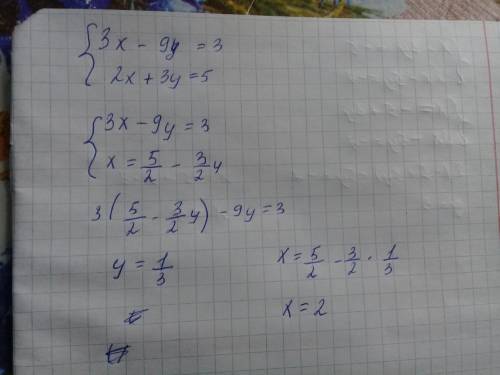 3x - 9y = 3
2x + 3y = 5
3x - 9y = 3
x = 5/2 - 3/2 y
3(5/2 - 3/2 y) - 9y = 3
y = 1/3
x = 5/2 - 3/2 · 1/3
x = 2